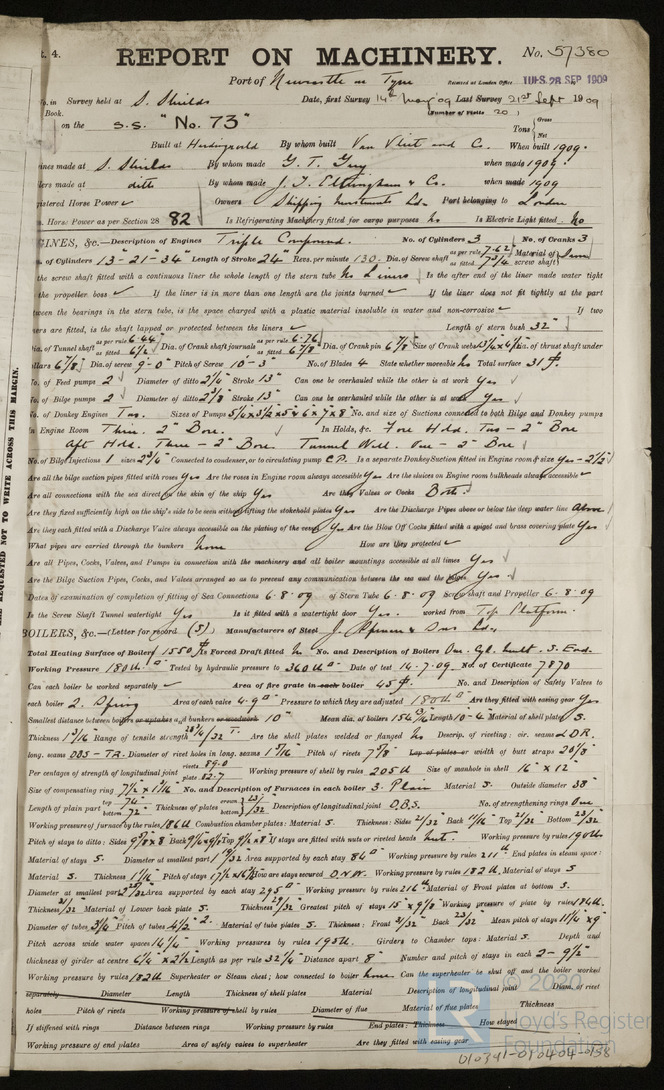 t. 4.
REPORT ON MACHINERY.
No. 57380
Port of Newcastle on Tyne
Received at London Office TUES. 28 SEP 1909
No. in Survey held at S. Shields Date, first Survey 14th May '09 Last Survey 21st Sept 1909
Book. (Number of Visits 20)
on the S.S. "No. 73" Tons Gross Net
Built at By whom built Van Vliet and C. When built 1909.
ines made at S. Shields By whom made G. T. when made 1909.
lers made at ditto By whom made J. T. Eltringham & Co. when made 1909
gistered Horse Power Owners Shipping Investments Ld. Port belonging to London
m. Horse Power as per Section 28 82 Is Refrigerating Machinery fitted for cargo purposes No Is Electric Light fitted No
GINES, &c.—Description of Engines Triple Compound. No. of Cylinders 3 No. of Cranks 3
. of Cylinders 13"-21"-34" Length of Stroke 24" Revs. per minute 130. Dia. of Screw shaft as per rule 7.62" as fitted 7 3/4" Material of screw shaft
the screw shaft fitted with a continuous liner the whole length of the stern tube No Liners Is the after end of the liner made water tight
the propeller boss If the liner is in more than one length are the joints burned If the liner does not fit tightly at the part
ween the bearings in the stern tube, is the space charged with a plastic material insoluble in water and non-corrosive If two
ners are fitted, is the shaft lapped or protected between the liners Length of stern bush 32"
Dia. of Tunnel shaft as per rule 6.44" as fitted 6 1/2" Dia. of Crank shaft journals as per rule 6.76" as fitted 6 7/8" Dia. of Crank pin 6 7/8" Size of Crank webs Dia. of thrust shaft under
ollars 6 7/8" Dia. of screw 9'-0" Pitch of Screw 10'-3" No. of Blades 4 State whether moveable No Total surface 31
No. of Feed pumps 2 Diameter of ditto 2 1/4" Stroke 13" Can one be overhauled while the other is at work Yes
No. of Bilge pumps 2 Diameter of ditto 2 3/8" Stroke 13" Can one be overhauled while the other is at work Yes
No. of Donkey Engines Two. Sizes of Pumps No. and size of Suctions connected to both Bilge and Donkey pumps
In Engine Room Three. 2" Bore. In Holds, &c. Fore Hold. Two - 2" Bore
Aft Hold. Three - 2" Bore. Tunnel Well. One - 2" Bore
No. of Bilge Injections 1 sizes 2 3/4" Connected to condenser, or to circulating pump C.P. Is a separate Donkey Suction fitted in Engine room & size Yes - 2 1/2"
Are all the bilge suction pipes fitted with roses Yes Are the roses in Engine room always accessible Yes Are the sluices on Engine room bulkheads always accessible
Are all connections with the sea direct on the skin of the ship Yes Are they Valves or Cocks Both.
Are they fixed sufficiently high on the ship's side to be seen without lifting the stokehold plates Yes Are the Discharge Pipes above or below the deep water line Above
Are they each fitted with a Discharge Valve always accessible on the plating of the vessel Yes Are the Blow Off Cocks fitted with a spigot and brass covering plate Yes
What pipes are carried through the bunkers None How are they protected
Are all Pipes, Cocks, Valves, and Pumps in connection with the machinery and all boiler mountings accessible at all times Yes
Are the Bilge Suction Pipes, Cocks, and Valves arranged so as to prevent any communication between the sea and the bilges Yes
Dates of examination of completion of fitting of Sea Connections 6.8.09 of Stern Tube 6.8.09 Screw shaft and Propeller 6.8.09
Is the Screw Shaft Tunnel watertight Yes Is it fitted with a watertight door Yes. worked from Top Platform.
BOILERS, &c.—(Letter for record (S)) Manufacturers of Steel J. Spencer & Sons Ld.
Total Heating Surface of Boilers 1550 Is Forced Draft fitted No No. and Description of Boilers One. Cyl. Mult. S. End.
Working Pressure 180 lb Tested by hydraulic pressure to 360 lb Date of test 14.7.09 No. of Certificate 7870
Can each boiler be worked separately Area of fire grate in each boiler 45 No. and Description of Safety Valves to
each boiler 2. Spring Area of each valve 4.9 Pressure to which they are adjusted 180 lb Are they fitted with easing gear Yes
Smallest distance between boilers or uptakes and bunkers or woodwork 10" Mean dia. of boilers Length 10-4 Material of shell plates S.
Thickness 1 3/16" Range of tensile strength Are the shell plates welded or flanged No Descrip. of riveting: cir. seams L.D.R.
long. seams DBS-TR. Diameter of rivet holes in long. seams 1 5/16" Pitch of rivets 7 7/8" Lap of plates or width of butt straps 20 1/8"
Per centages of strength of longitudinal joint rivets 89.0 plate 82.7 Working pressure of shell by rules 205 lb Size of manhole in shell 16" x 12"
Size of compensating ring No. and Description of Furnaces in each boiler 3. Plain Material S. Outside diameter 38"
Length of plain part top 74" bottom 72" Thickness of plates crown bottom 23/32 Description of longitudinal joint D.B.S. No. of strengthening rings One
Working pressure of furnace by the rules 186 lb Combustion chamber plates: Material S. Thickness: Sides 21/32" Back 11/16" Top 21/32 Bottom 23/32
Pitch of stays to ditto: Sides Back Top If stays are fitted with nuts or riveted heads Nut. Working pressure by rules 190 lb
Material of stays S. Diameter at smallest part Area supported by each stay 84 Working pressure by rules 211 lb End plates in steam space:
Material S. Thickness 1 1/16" Pitch of stays How are stays secured D.N.W. Working pressure by rules 182 lb Material of stays S
Diameter at smallest part Area supported by each stay 295 Working pressure by rules 216 lb Material of Front plates at bottom S.
Thickness 31/32" Material of Lower back plate S. Thickness 29/32" Greatest pitch of stays 15" x 9 5/8 Working pressure of plate by rules 184 lb
Diameter of tubes 3 1/4" Pitch of tubes 4 1/2". Material of tube plates S. Thickness: Front 31/32" Back 23/32" Mean pitch of stays 11 1/4" x 9"
Pitch across wide water spaces 14 1/4" Working pressures by rules 195 lb. Girders to Chamber tops: Material S. Depth and
thickness of girder at centre 6 1/4" x 2 1/2" Length as per rule 32 1/4" Distance apart 8" Number and pitch of stays in each 2 - 9 1/2"
Working pressure by rules 182 lb Superheater or Steam chest; how connected to boiler None. Can the superheater be shut off and the boiler worked
separately Diameter Length Thickness of shell plates Material Description of longitudinal joint Diam. of rivet
holes Pitch of rivets Working pressure of shell by rules Diameter of flue Material of flue plates Thickness
If stiffened with rings Distance between rings Working pressure by rules End plates: Thickness How stayed
Working pressure of end plates Area of safety valves to superheater Are they fitted with easing gear
© 2020
Lloyd's Register
Foundation
010391-010404-0138
RE REQUESTED NOT TO WRITE ACROSS THIS MARGIN.